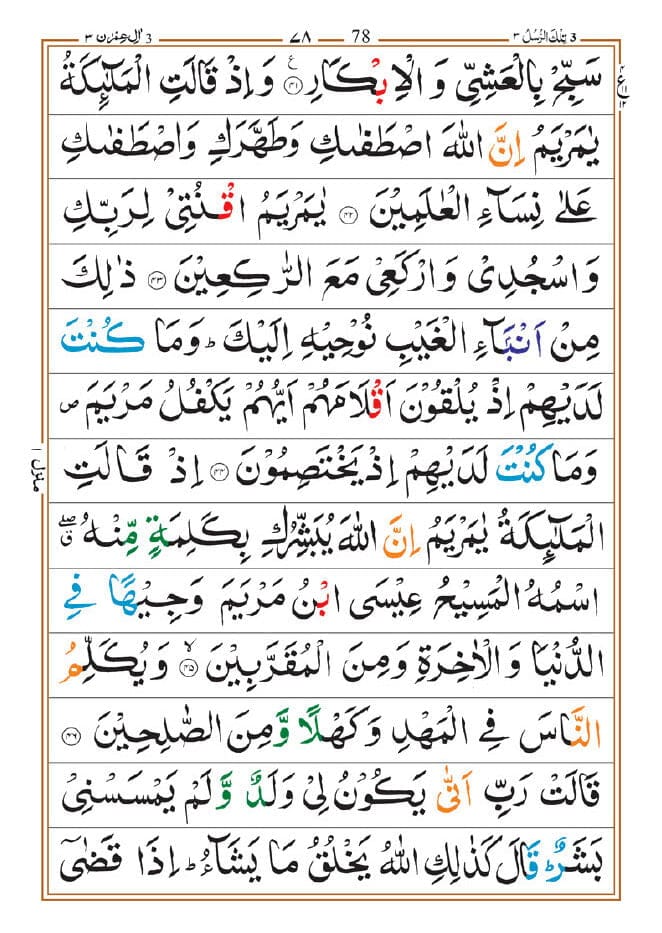 تِلۡكَ الرُّسُلُ ٣ 3 78 ٧٨ اٰلِ عِمۡرٰن ٣ 3
سَبِّحۡ بِالۡعَشِىِّ وَ الۡاِبۡكَارِ ﴿۴۱﴾ ع وَ اِذۡ قَالَتِ الۡمَلٰٓئِكَةُ
يٰمَرۡيَمُ اِنَّ اللّٰهَ اصۡطَفٰٮكِ وَطَهَّرَكِ وَاصۡطَفٰٮكِ
عَلٰى نِسَآءِ الۡعٰلَمِيۡنَ ﴿۴۲﴾ يٰمَرۡيَمُ اقۡنُتِىۡ لِرَبِّكِ
وَاسۡجُدِىۡ وَارۡكَعِىۡ مَعَ الرّٰكِعِيۡنَ ﴿۴۳﴾ ذٰلِكَ
مِنۡ اَنۡۢبَآءِ الۡغَيۡبِ نُوۡحِيۡهِ اِلَيۡكَ‌ؕ وَمَا كُنۡتَ
لَدَيۡهِمۡ اِذۡ يُلۡقُوۡنَ اَقۡلَامَهُمۡ اَيُّهُمۡ يَكۡفُلُ مَرۡيَمَ ص
وَمَا كُنۡتَ لَدَيۡهِمۡ اِذۡ يَخۡتَصِمُوۡنَ ﴿۴۴﴾ اِذۡ قَالَتِ
الۡمَلٰٓئِكَةُ يٰمَرۡيَمُ اِنَّ اللّٰهَ يُبَشِّرُكِ بِكَلِمَةٍ مِّنۡهُ
اسۡمُهُ الۡمَسِيۡحُ عِيۡسَى ابۡنُ مَرۡيَمَ وَجِيۡهًا فِى
الدُّنۡيَا وَالۡاٰخِرَةِ وَمِنَ الۡمُقَرَّبِيۡنَ ۙ‏ ﴿۴۵﴾ وَيُكَلِّمُ
النَّاسَ فِى الۡمَهۡدِ وَكَهۡلًا وَّمِنَ الصّٰلِحِيۡنَ ﴿۴۶﴾
قَالَتۡ رَبِّ اَنّٰى يَكُوۡنُ لِىۡ وَلَدٌ وَّلَمۡ يَمۡسَسۡنِىۡ
بَشَرٌ‌ؕ قَالَ كَذٰلِكِ اللّٰهُ يَخۡلُقُ مَا يَشَآءُ‌ؕ اِذَا قَضٰٓى
منزل ١